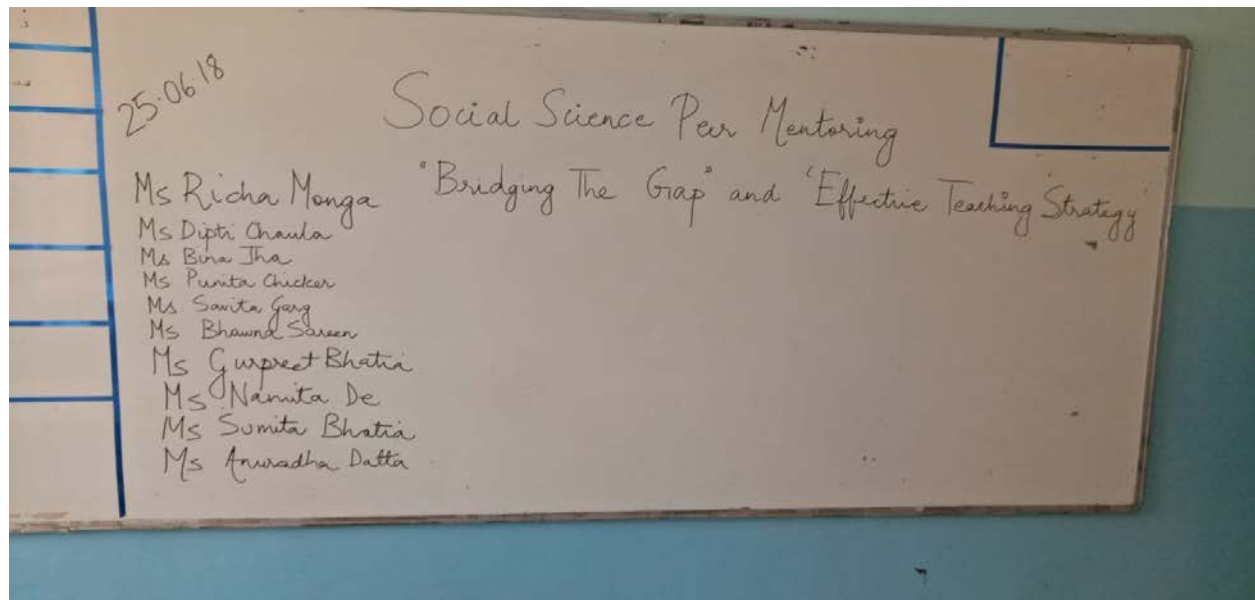 25.06.18
Social Science Peer Mentoring
"Bridging The Gap" and 'Effective Teaching Strategy'
Ms Richa Monga
Ms Dipti Chaula
Ms Bina Jha
Ms Punita Chicker
Ms Savita Garg
Ms Bhawna Sareen
Ms Gurpreet Bhatia
Ms Namita De
Ms Sumita Bhatia
Ms Anuradha Datta